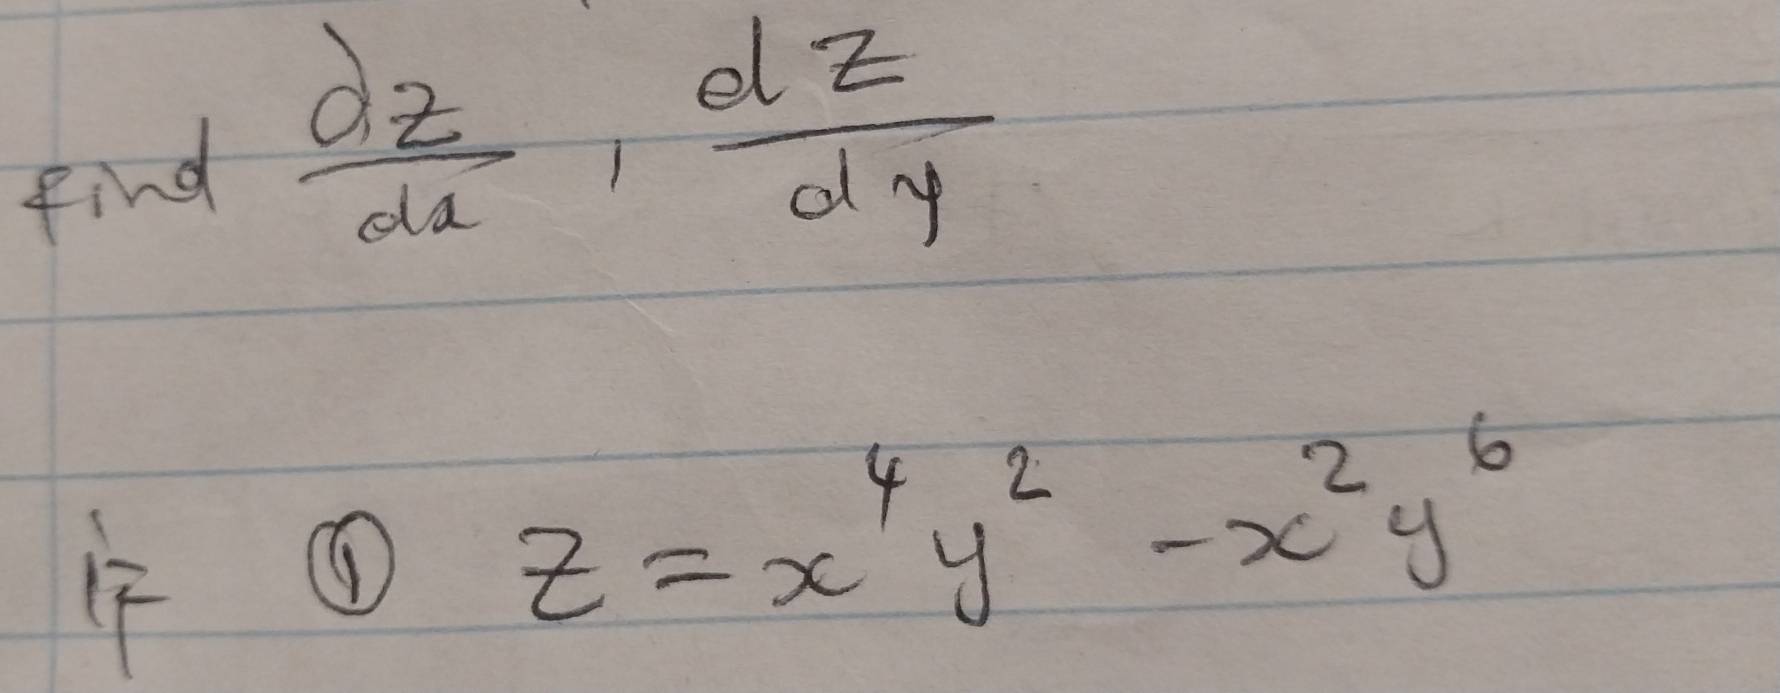 Find dz/dx , dz/dy
if ① z = x⁴y² - x²y⁶